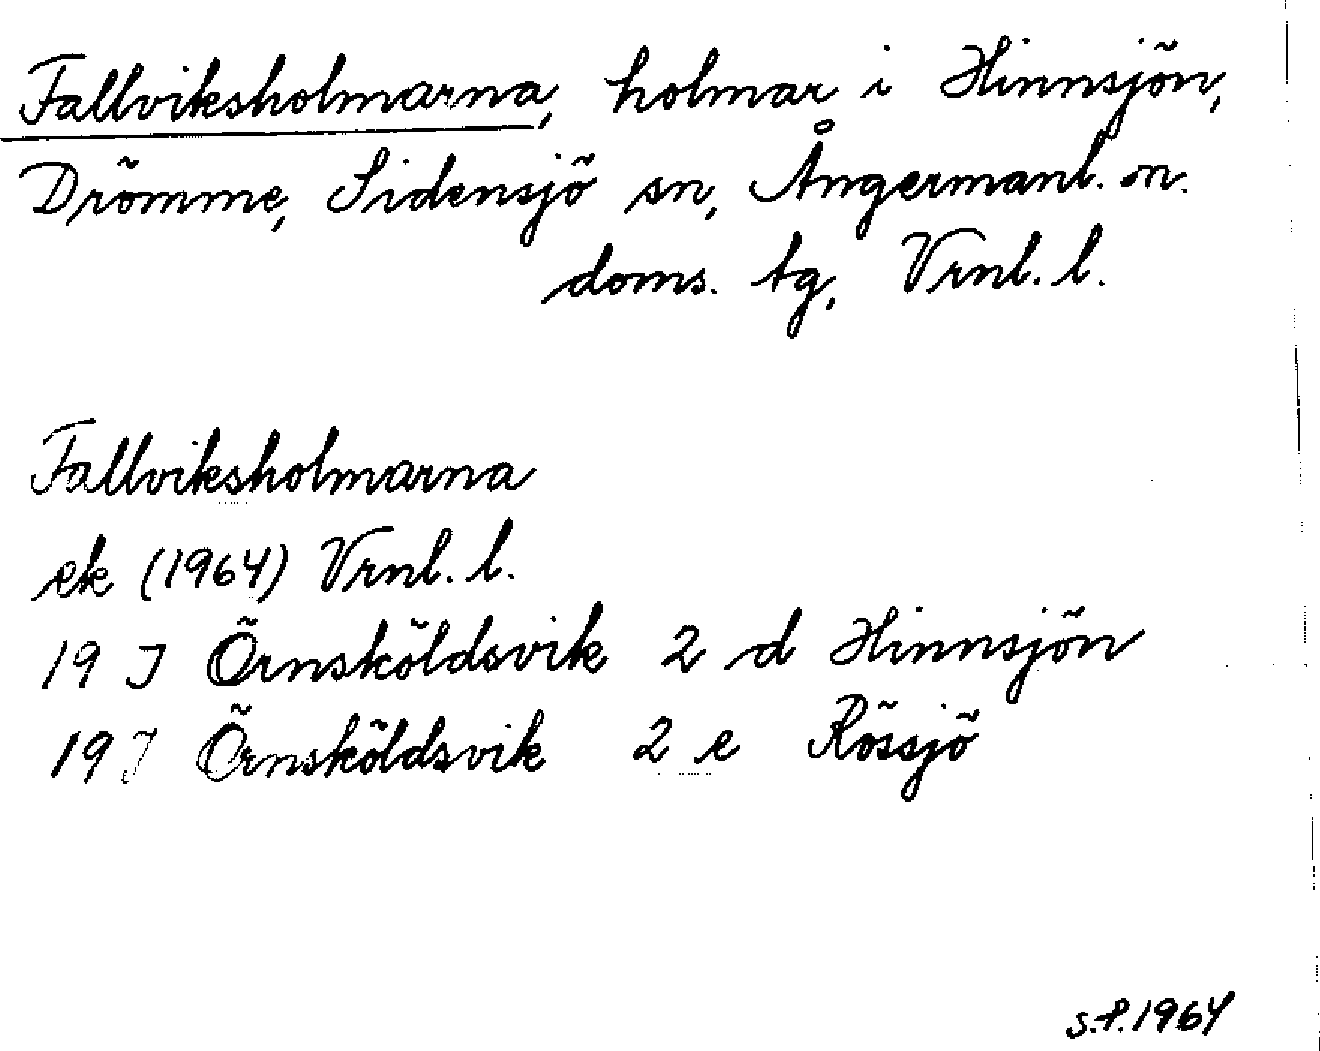 Fallviksholmarna, holmar i Hinnsjön,
Drömme, Sidensjö sn, Ångermanl. n.
doms. tg, Vrnl. l.
Fallviksholmarna
ek (1964) Vrnl. l.
19 J Örnsköldsvik 2 d Hinnsjön
19 J Örnsköldsvik 2 e Rössjö
S.P. 1964